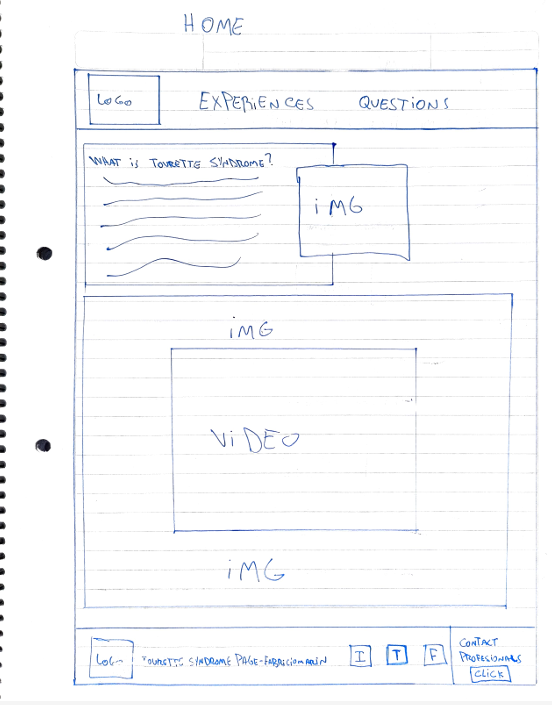 HOME
LOGO
EXPERiENCES QUESTIONS
WHAT iS TOURETTE SYNDROME?
iMG
iMG
ViDEO
iMG
TOURETTE SYNDROME PAGE-FABRICIOMARIN
I T F
CONTACT
PROFESIONALS
CLiCK